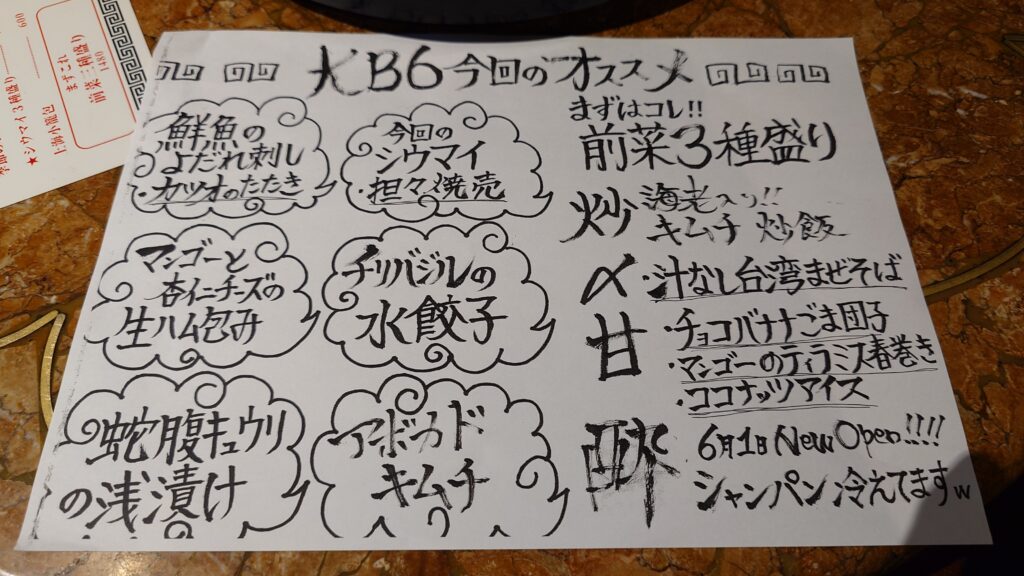 KB6今回のオススメ
鮮魚の
よだれ刺し
・カツオのたたき
今回の
シウマイ
・担々焼売
マンゴーと
杏仁チーズの
生ハム包み
チリバジルの
水餃子
蛇腹キュウリ
の浅漬け
アボカド
キムチ
まずはコレ!!
前菜3種盛り
炒 海老入り!!
キムチ 炒飯
〆 ・汁なし台湾まぜそば
甘 ・チョコバナナごま団子
・マンゴーのティラミス春巻き
・ココナッツアイス
酔 6月1日 New Open!!!!
シャンパン冷えてますw
まずこれ
前菜三種盛り
1480
600
★シウマイ3種盛り
上海小籠包